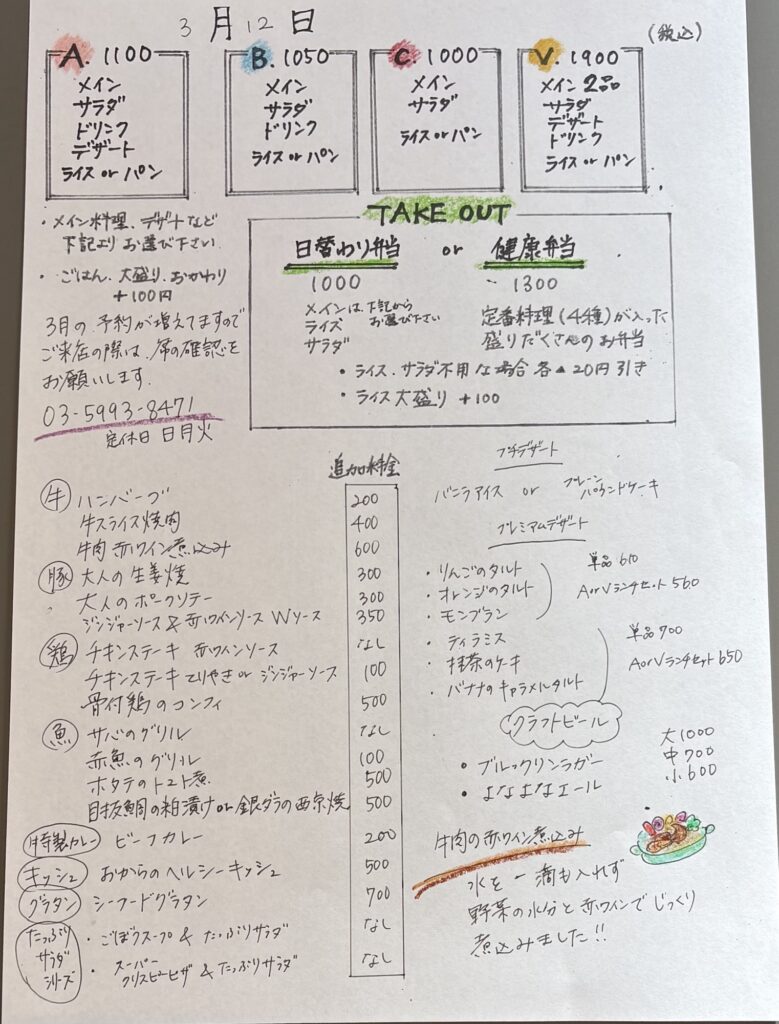 3月12日
(税込)
A. 1100
メイン
サラダ
ドリンク
デザート
ライス or パン
B. 1050
メイン
サラダ
ドリンク
ライス or パン
C. 1000
メイン
サラダ
ライス or パン
V. 1900
メイン 2品
サラダ
デザート
ドリンク
ライス or パン
・メイン料理、デザートなど
下記より お選び下さい
・ごはん、大盛り、おかわり
+100円
3月の 予約が増えてますので
ご来店の際は、席の確認を
お願いします.
03-5993-8471
定休日 日月火
TAKE OUT
日替わり弁当 or 健康弁当
1000
メインは、下記から
お選び下さい
ライス
サラダ
1300
定番料理(4種)が入った
盛りだくさんのお弁当
・ライス、サラダ不用な場合 各▲20円引き
・ライス大盛り +100
追加料金
牛 ハンバーグ 200
牛スライス焼肉 400
牛肉 赤ワイン煮込み 600
豚 大人の生姜焼 300
大人のポークソテー 300
ジンジャーソース & 赤ワインソース Wソース 350
鶏 チキンステーキ 赤ワインソース なし
チキンステーキ てりやき or ジンジャーソース 100
骨付鶏のコンフィ 500
魚 サバのグリル なし
赤魚のグリル 100
ホタテのトマト煮 500
目抜鯛の粕漬け or 銀ダラの西京焼 500
特製カレー ビーフカレー 200
キッシュ おからのヘルシーキッシュ 500
グラタン シーフードグラタン 700
たっぷり
サラダ
シリーズ
・ごぼうスープ & たっぷりサラダ なし
・スーパー
クリスピーピザ & たっぷりサラダ なし
プチデザート
バニラアイス or プレーン
パウンドケーキ
プレミアムデザート
・りんごのタルト
・オレンジのタルト
・モンブラン
単品 610
A or V ランチセット 560
・ティラミス
・抹茶のケーキ
・バナナのキャラメルタルト
単品 700
A or V ランチセット 650
クラフトビール
・ブルックリンラガー
・よなよなエール
大1000
中700
小600
牛肉の赤ワイン煮込み
水を一滴も入れず
野菜の水分と赤ワインでじっくり
煮込みました!!